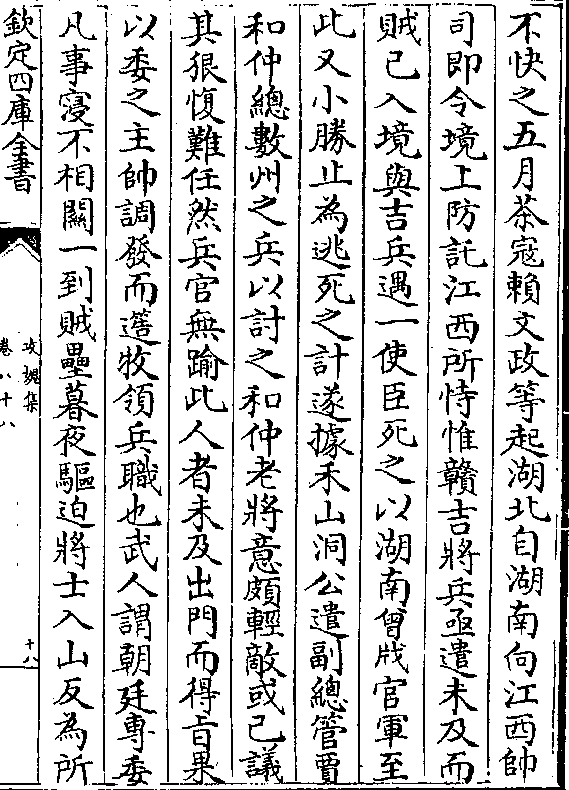 不快之五月茶寇賴文政等起湖北自湖南向江西帥
司即令境上防託江西所恃惟贛吉將兵亟遣未及而
賊已入境與吉兵遇一使臣死之以湖南曾戕官軍至
此又小勝止為逃死之計遂據禾山洞公遣副總管賈
和仲總數州之兵以討之和仲老將意頗輕敵或已議
其狠愎難任然兵官無踰此人者未及出門而得旨果
以委之主帥調發而簉牧領兵職也武人謂朝廷專委
凡事寖不相關一到賊壘暮夜驅迫將士入山反為所
欽定四庫全書
攻媿集
卷八十八
十八